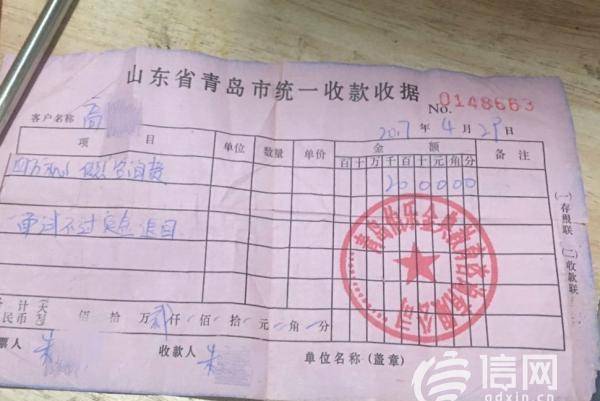 山东省青岛市统一收款收据
No. 0148663
客户名称 高
2017年4月29日
项目 单位 数量 单价 金额 备注
百十万千百十元角分
咨询费 200000
面试不过全退回
(一)存根联 (二)收款联
合计大
人民币写 佰 拾 万 贰仟 佰 拾 元 角 分
票人 朱 收款人 朱 单位名称(盖章)
信网
qdxin.cn